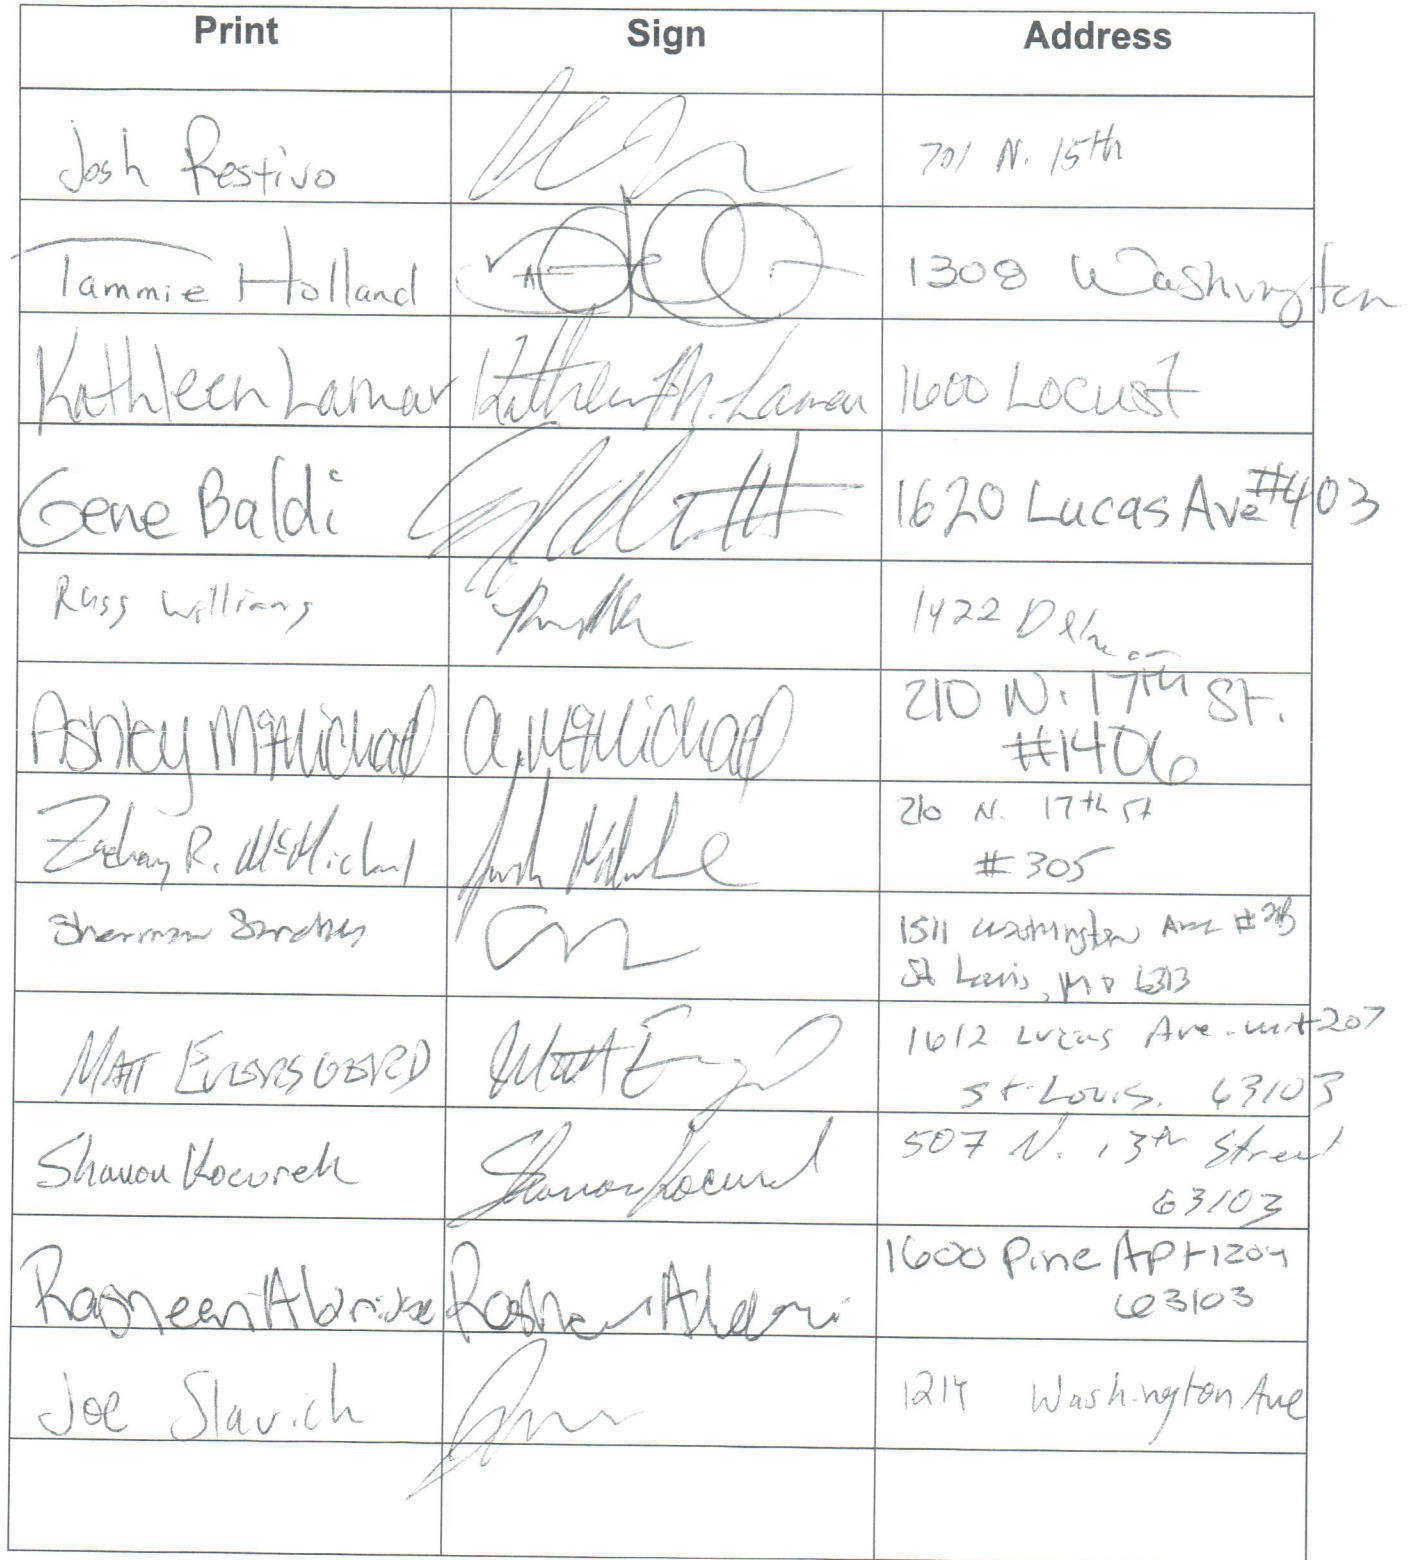 Print Sign Address
Josh Restivo 701 N. 15th
Tammie Holland 1308 Washington
Kathleen Lamar Kathleen M. Lamar 1600 Locust
Gene Baldi 1620 Lucas Ave #403
Russ Williams 1422 Delmar
Ashley McMichael A. McMichael 210 N. 17th St.
#1406
Zachary R. McMichael 210 N. 17th St
#305
Sherman 1511 Washington Ave
St Louis, MO
MATT EVERSGERD Matt 1612 Lucas Ave. unit 207
St. Louis. 63103
Shanon Kocurek Shanon Kocurek 507 N. 13th Street
63103
Rasheen Aldridge Rasheen 1600 Pine Apt 1204
63103
Joe Slavich 1214 Washington Ave